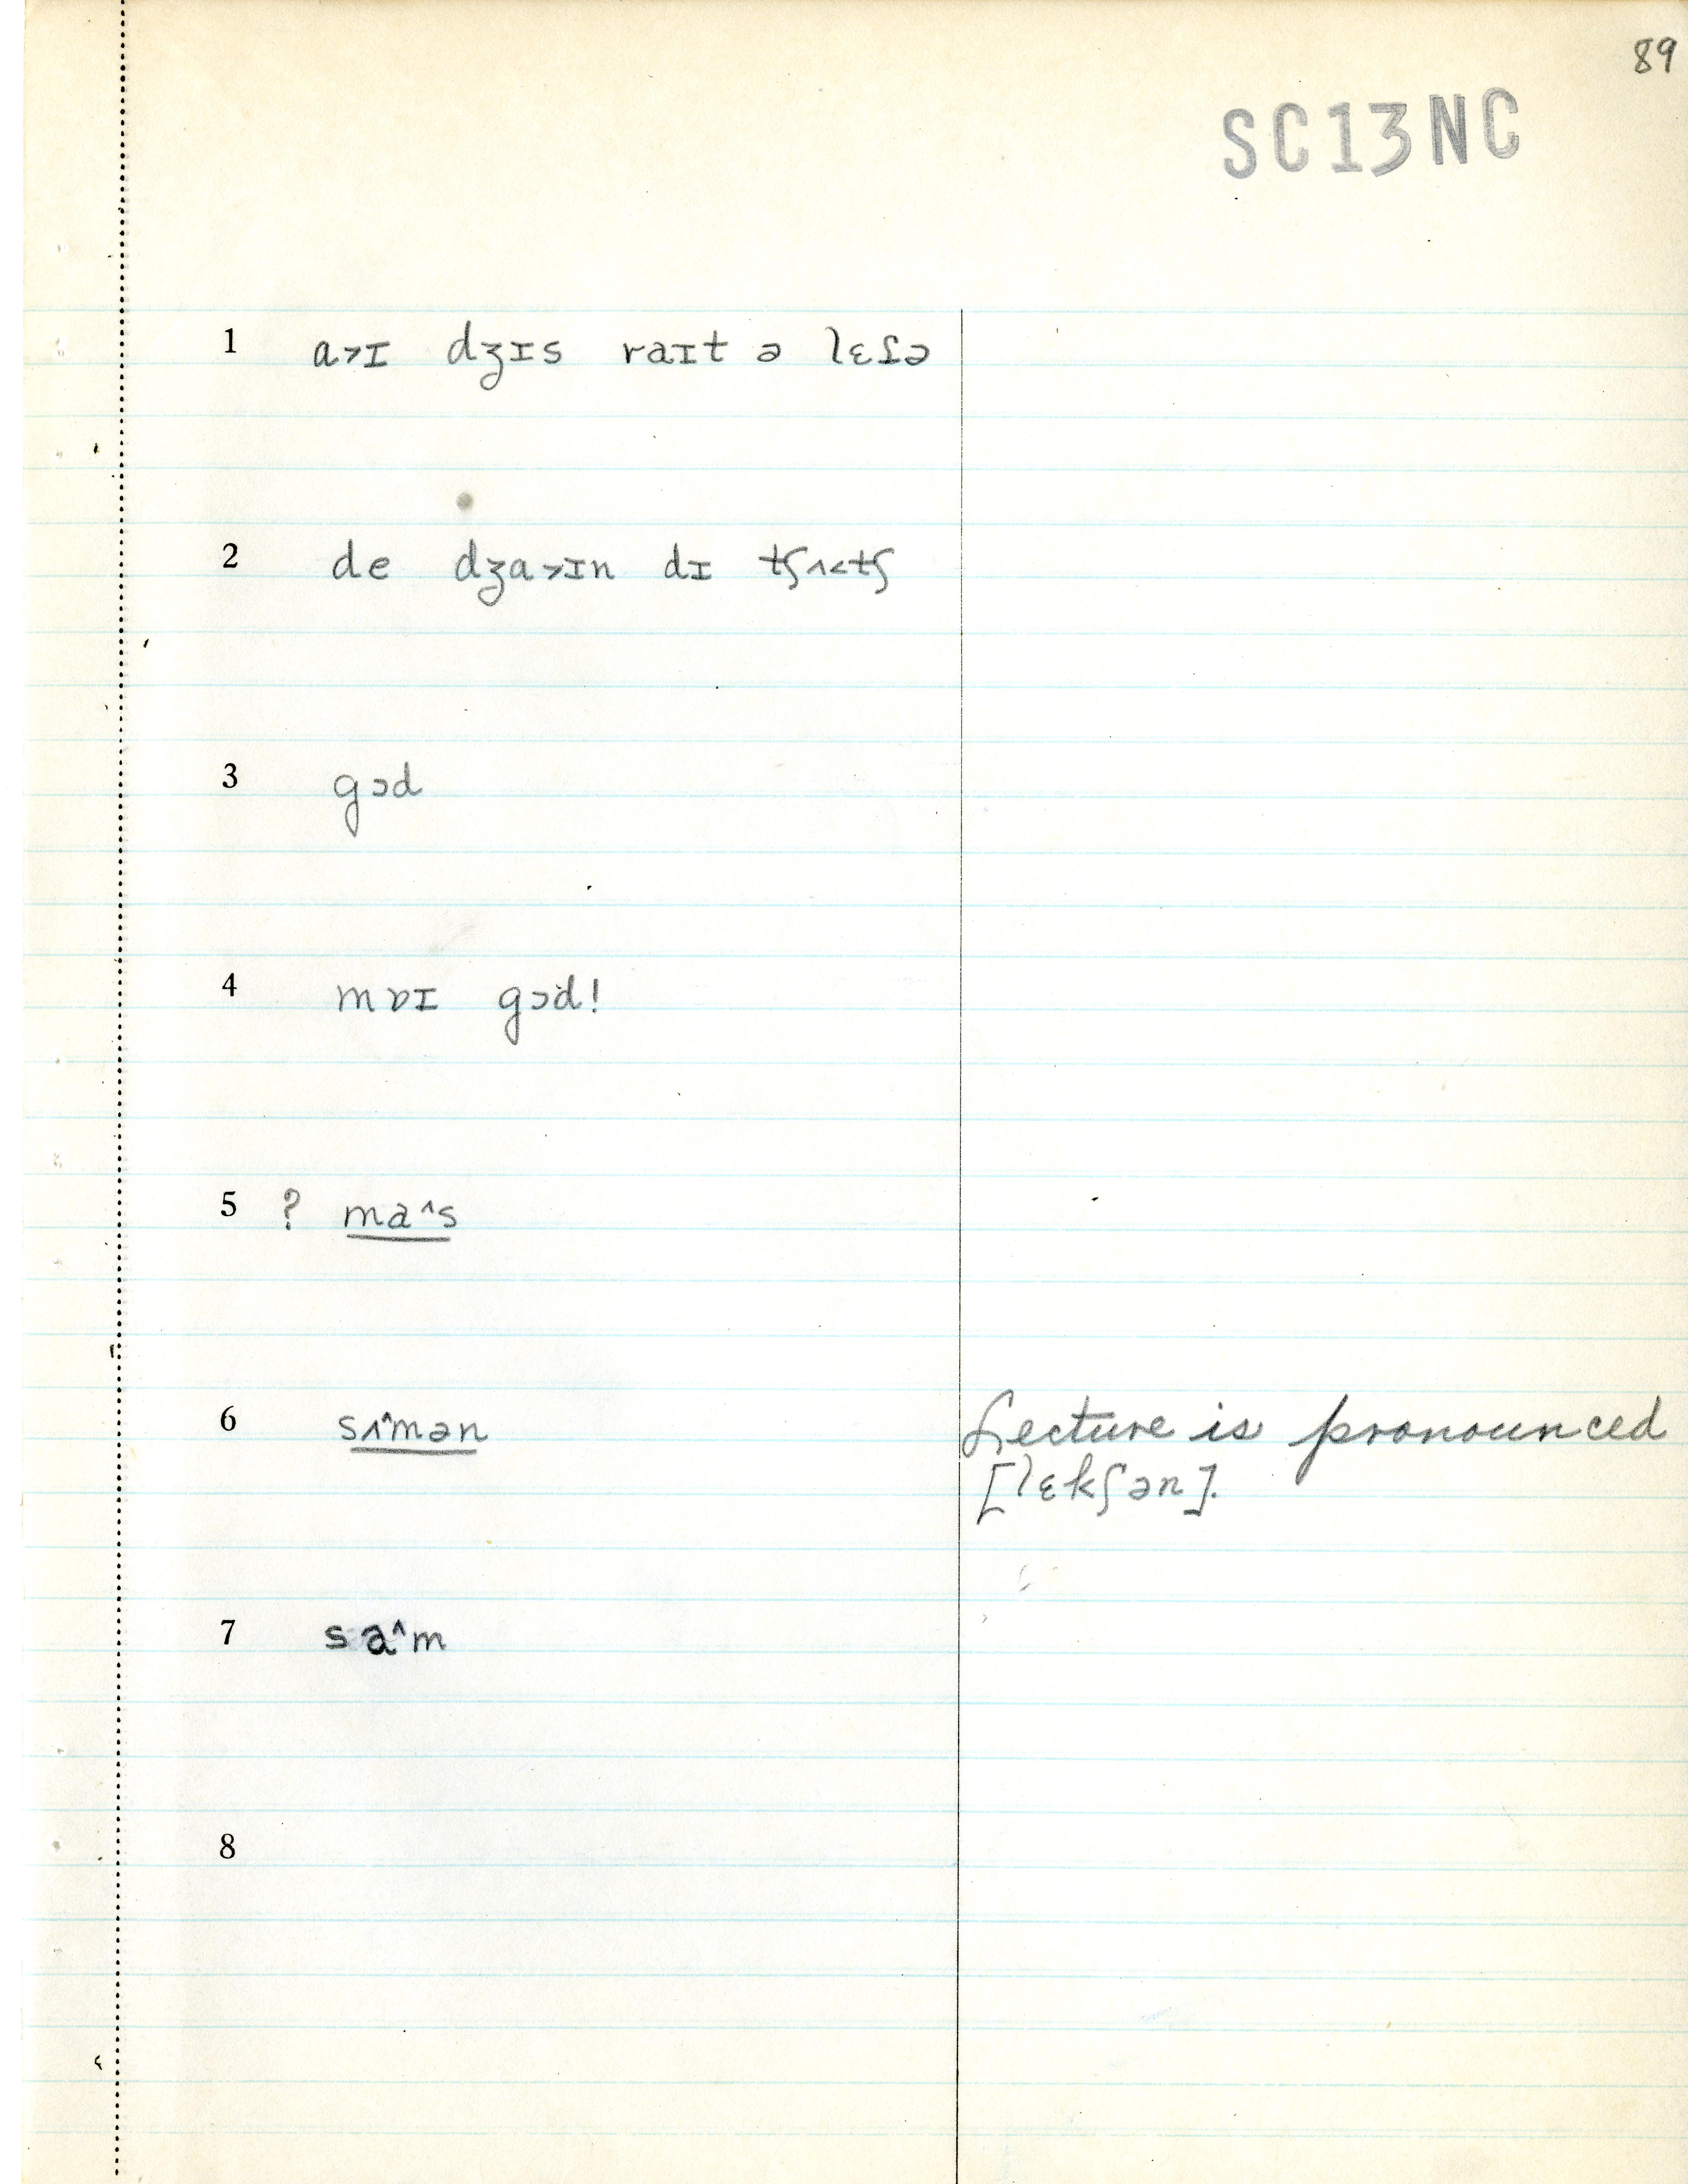 89
SC13NC
1 a˃ɪ dʒɪs raɪt ə lɛɾə
2 de dʒa˃ɪn dɪ tʃʌ˂tʃ
3 gɔd
4 mɒɪ gɔd!
5 ? ma^s
6 sʌ^mən
Lecture is pronounced
[lɛkʃən].
7 sa^m
8